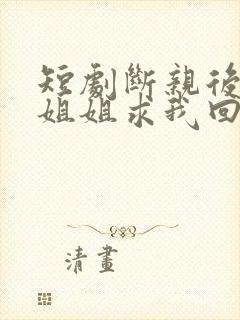 短劇斷親後
姐姐求我回
清畫